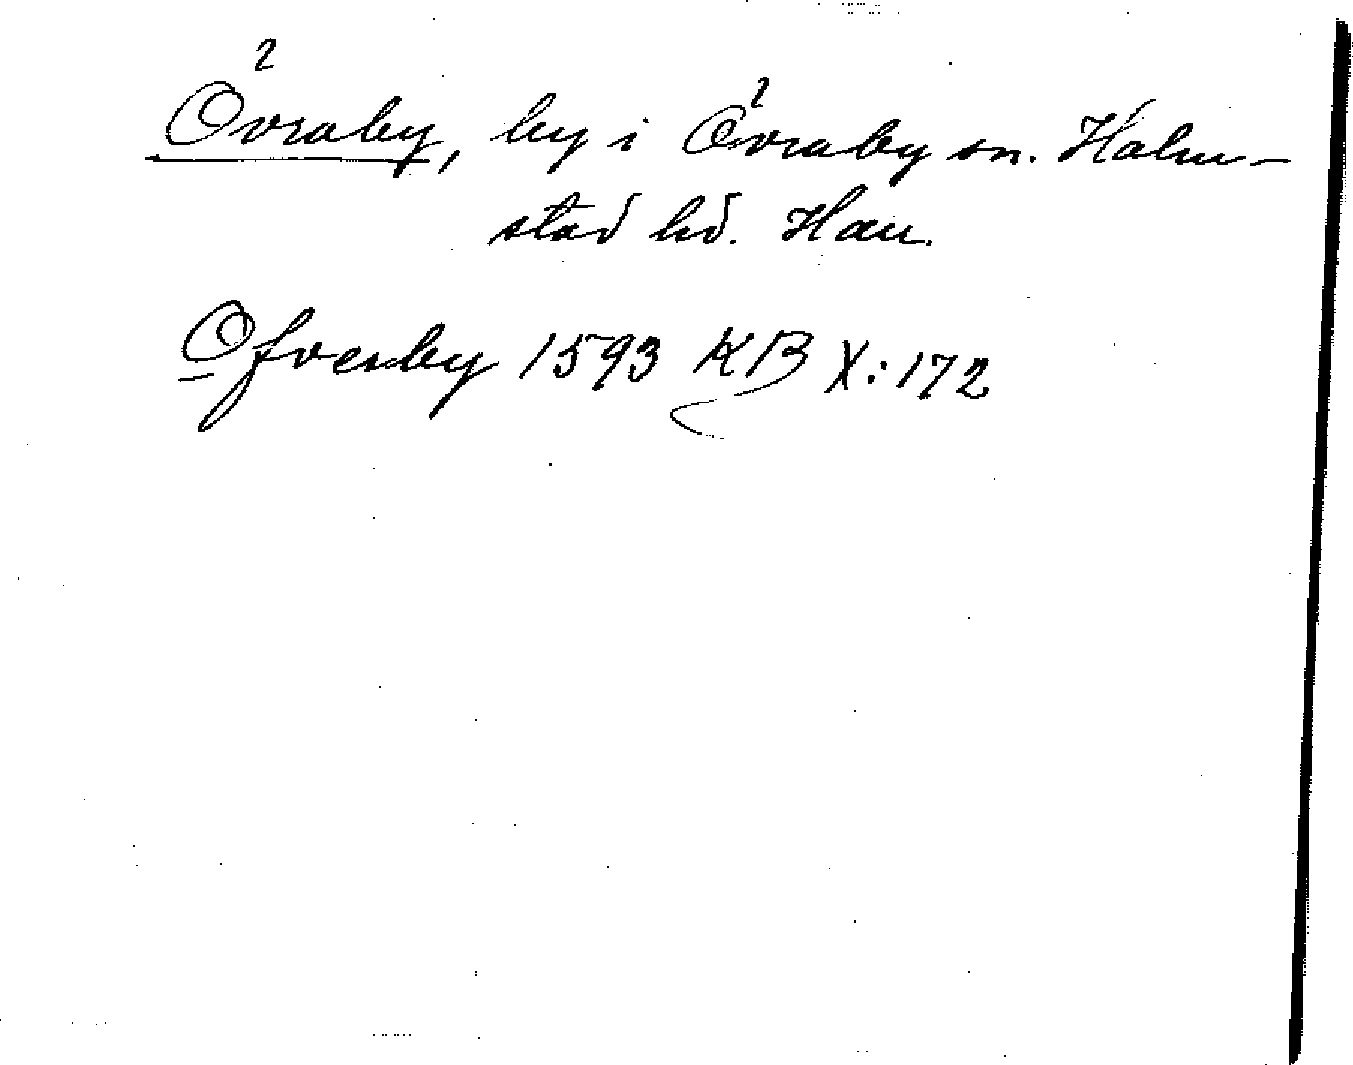 Övraby, by i Övraby sn. Halm-
stad hd. Hall.
Ofverby 1593 KB X:172